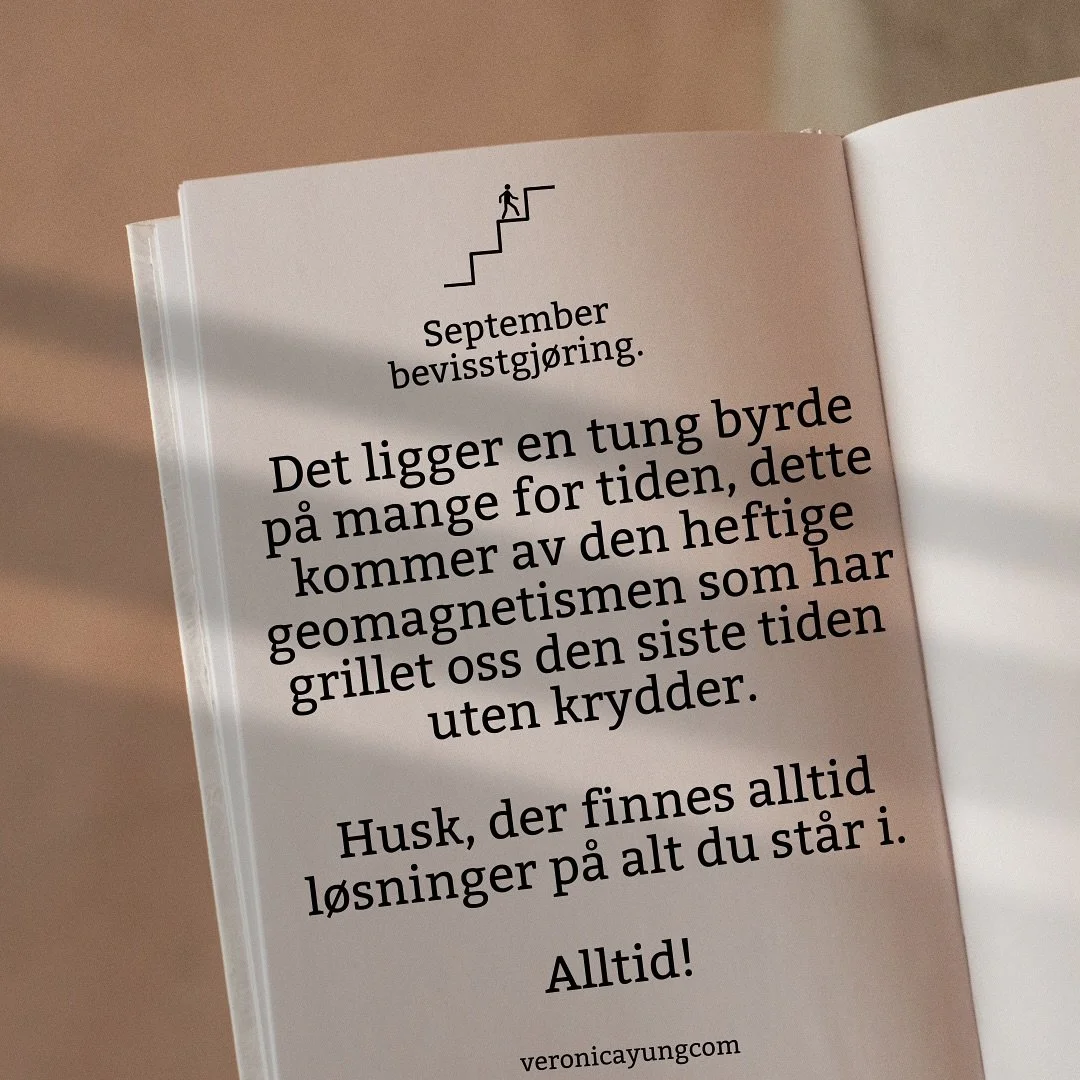 September
bevisstgjøring.
Det ligger en tung byrde
på mange for tiden, dette
kommer av den heftige
geomagnetismen som har
grillet oss den siste tiden
uten krydder.
Husk, der finnes alltid
løsninger på alt du står i.
Alltid!
veronicayungcom